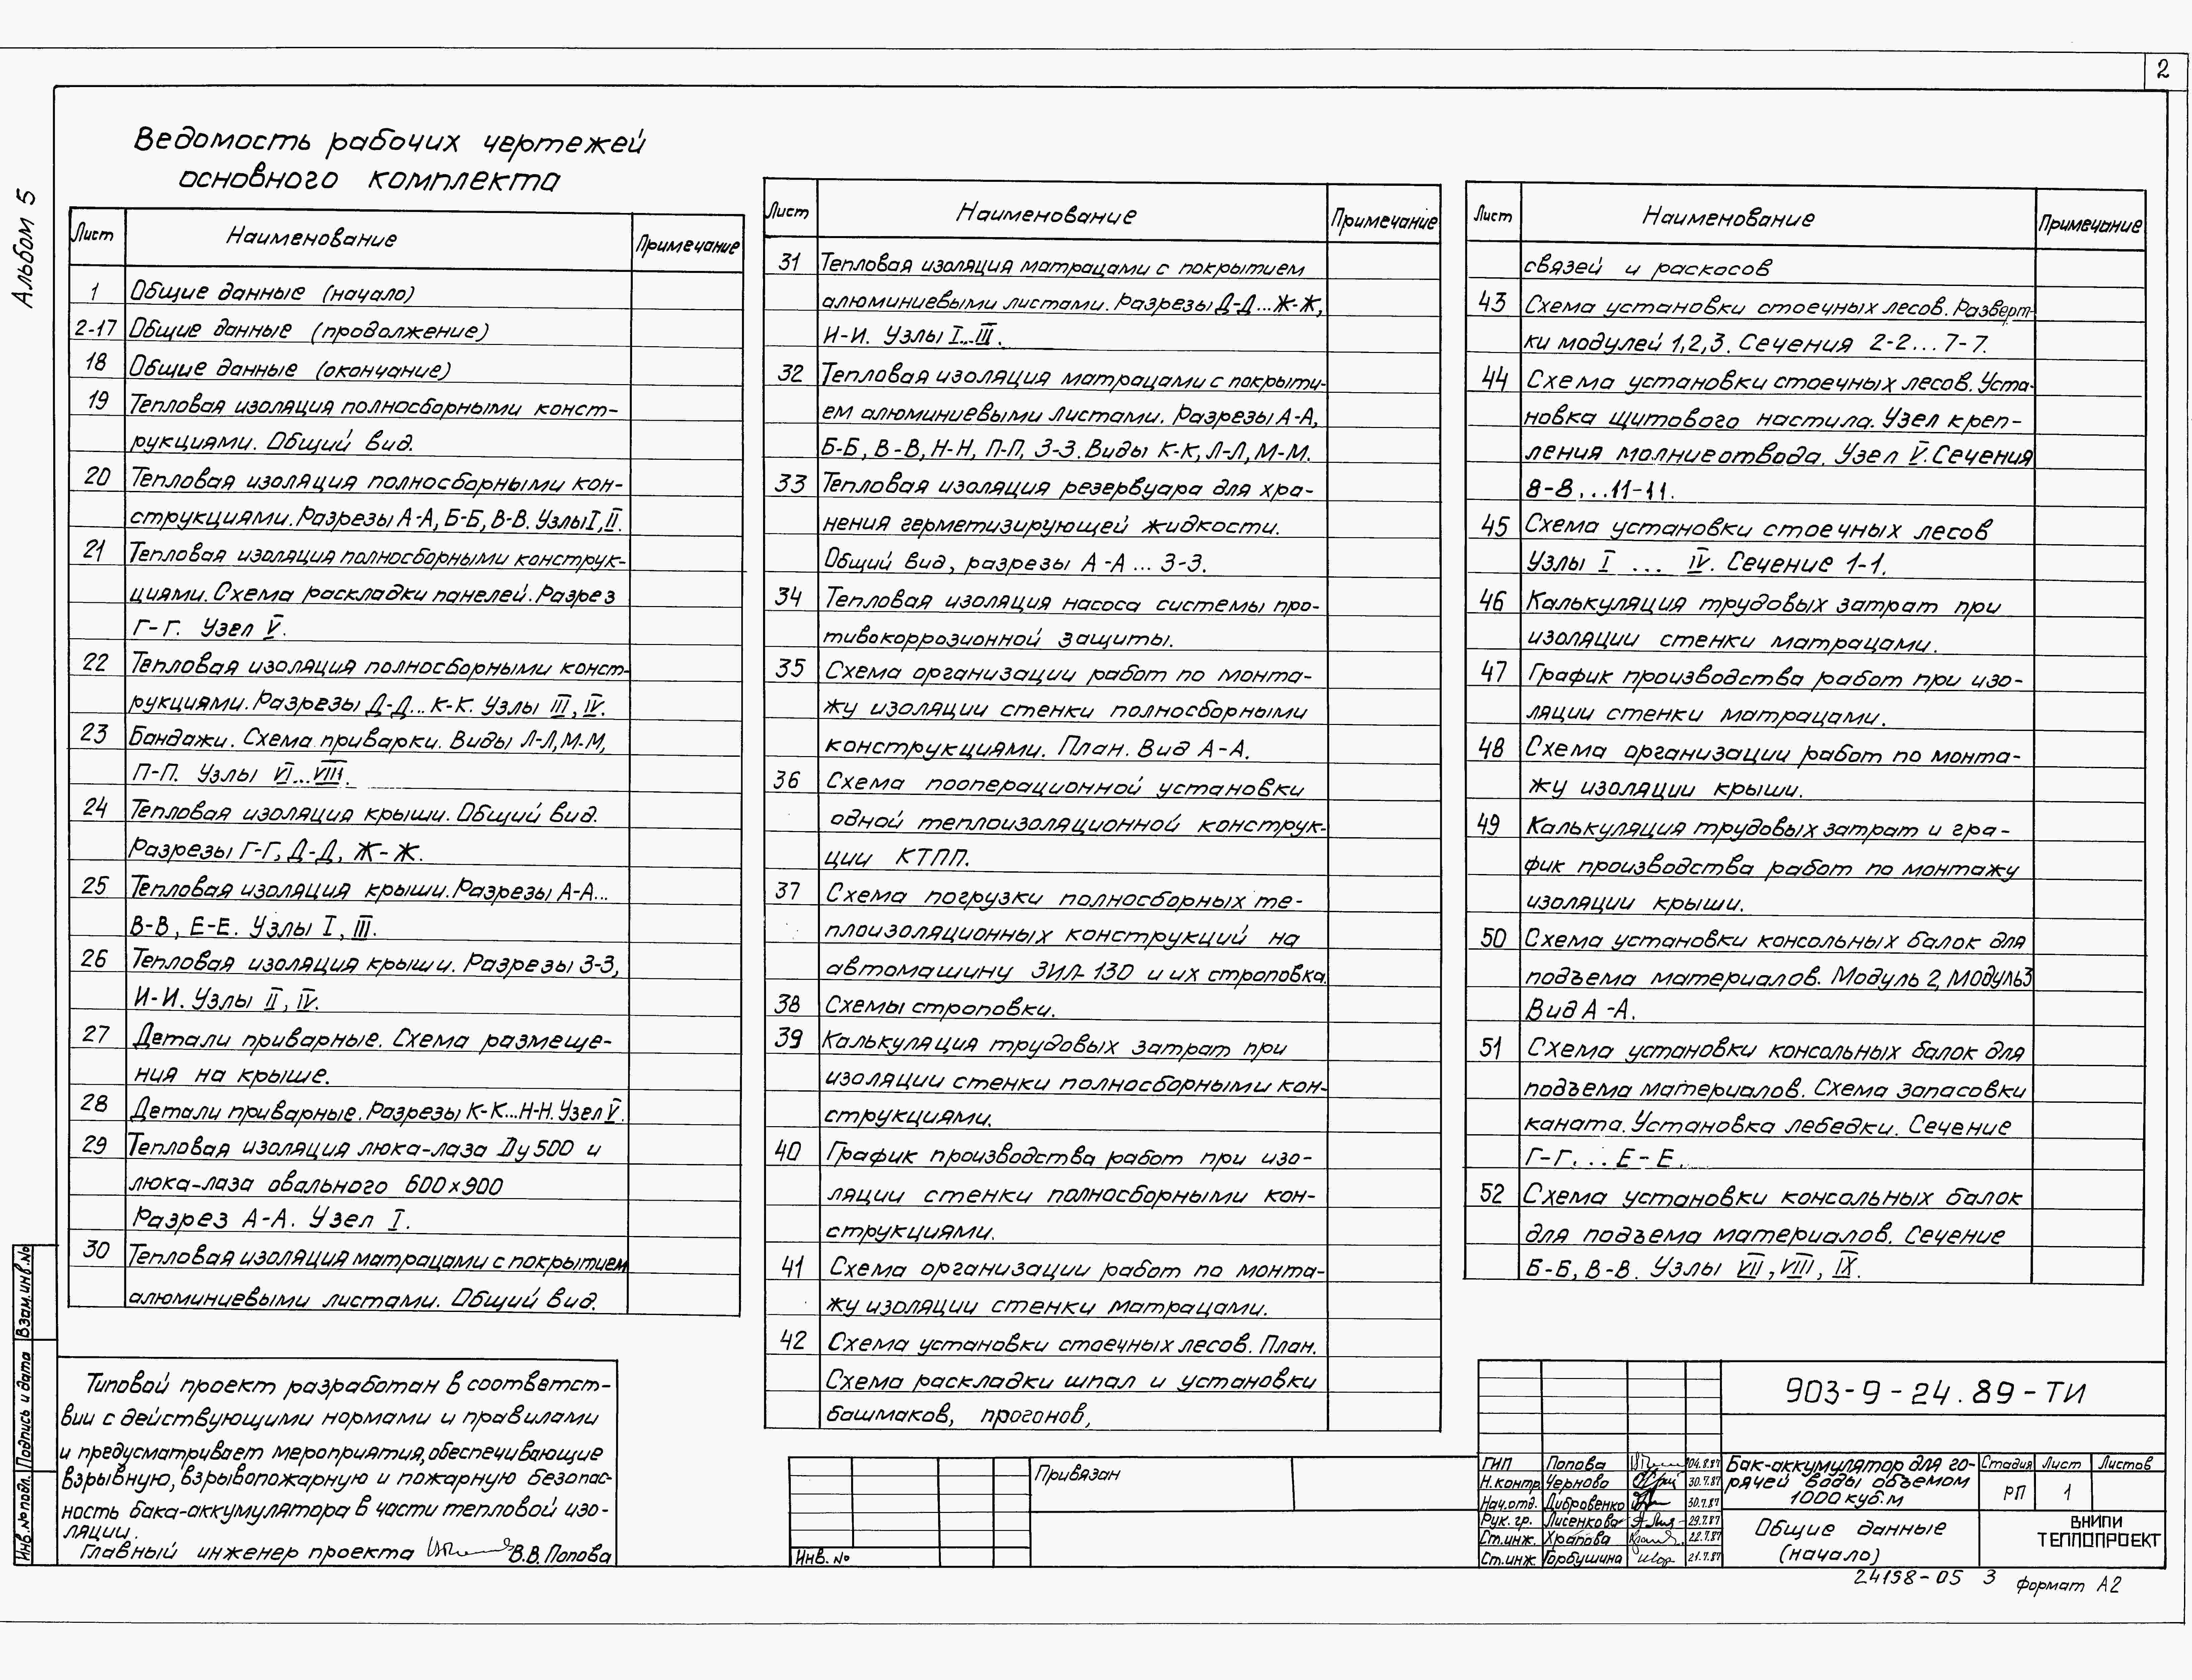 2
Альбом 5
Ведомость рабочих чертежей
основного комплекта
Лист Наименование Примечание
1 Общие данные (начало)
2-17 Общие данные (продолжение)
18 Общие данные (окончание)
19 Тепловая изоляция полносборными конст-
рукциями. Общий вид.
20 Тепловая изоляция полносборными кон-
струкциями. Разрезы А-А, Б-Б, В-В. Узлы I, II.
21 Тепловая изоляция полносборными конструк-
циями. Схема раскладки панелей. Разрез
Г-Г. Узел V.
22 Тепловая изоляция полносборными конст-
рукциями. Разрезы Д-Д...К-К. Узлы III, IV.
23 Бандажи. Схема приварки. Виды Л-Л, М-М,
П-П. Узлы VI...VIII.
24 Тепловая изоляция крыши. Общий вид.
Разрезы Г-Г, Д-Д, Ж-Ж.
25 Тепловая изоляция крыши. Разрезы А-А...
В-В, Е-Е. Узлы I, III.
26 Тепловая изоляция крыши. Разрезы З-З,
И-И. Узлы II, IV.
27 Детали приварные. Схема размеще-
ния на крыше.
28 Детали приварные. Разрезы К-К...Н-Н. Узел V.
29 Тепловая изоляция люка-лаза Ду 500 и
люка-лаза овального 600х900
Разрез А-А. Узел I.
30 Тепловая изоляция матрацами с покрытием
алюминиевыми листами. Общий вид.
Лист Наименование Примечание
31 Тепловая изоляция матрацами с покрытием
алюминиевыми листами. Разрезы Д-Д...Ж-Ж,
И-И. Узлы I...III.
32 Тепловая изоляция матрацами с покрыти-
ем алюминиевыми листами. Разрезы А-А,
Б-Б, В-В, Н-Н, П-П, З-З. Виды К-К, Л-Л, М-М.
33 Тепловая изоляция резервуара для хра-
нения герметизирующей жидкости.
Общий вид, разрезы А-А ... З-З.
34 Тепловая изоляция насоса системы про-
тивокоррозионной защиты.
35 Схема организации работ по монта-
жу изоляции стенки полносборными
конструкциями. План. Вид А-А.
36 Схема пооперационной установки
одной теплоизоляционной конструк-
ции КТПП.
37 Схема погрузки полносборных те-
плоизоляционных конструкций на
автомашину ЗИЛ-130 и их строповка.
38 Схемы строповки.
39 Калькуляция трудовых затрат при
изоляции стенки полносборными кон-
струкциями.
40 График производства работ при изо-
ляции стенки полносборными кон-
струкциями.
41 Схема организации работ по монта-
жу изоляции стенки матрацами.
42 Схема установки стоечных лесов. План.
Схема раскладки шпал и установки
башмаков, прогонов,
Лист Наименование Примечание
связей и раскосов
43 Схема установки стоечных лесов. Разверт-
ки модулей 1,2,3. Сечения 2-2...7-7.
44 Схема установки стоечных лесов. Уста-
новка щитового настила. Узел креп-
ления молниеотвода. Узел V. Сечения
8-8...11-11.
45 Схема установки стоечных лесов
Узлы I ... IV. Сечение 1-1.
46 Калькуляция трудовых затрат при
изоляции стенки матрацами.
47 График производства работ при изо-
ляции стенки матрацами.
48 Схема организации работ по монта-
жу изоляции крыши.
49 Калькуляция трудовых затрат и гра-
фик производства работ по монтажу
изоляции крыши.
50 Схема установки консольных балок для
подъема материалов. Модуль 2, Модуль 3
Вид А-А.
51 Схема установки консольных балок для
подъема материалов. Схема запасовки
каната. Установка лебедки. Сечение
Г-Г...Е-Е.
52 Схема установки консольных балок
для подъема материалов. Сечение
Б-Б, В-В. Узлы VII, VIII, IX.
Типовой проект разработан в соответст-
вии с действующими нормами и правилами
и предусматривает мероприятия, обеспечивающие
взрывную, взрывопожарную и пожарную безопас-
ность бака-аккумулятора в части тепловой изо-
ляции.
Главный инженер проекта В.В. Попова
Взам. инв. №
Подпись и дата
Инв. № подл.
Привязан
Инв. №
903-9-24.89-ТИ
ГИП Попова 04.8.87
Н. контр. Чернова 30.7.87
Нач. отд. Дибровенко 30.7.87
Рук. гр. Лисенкова 29.7.87
Ст. инж. Храпова 22.7.87
Ст. инж. Горбушина 21.7.87
Бак-аккумулятор для го-
рячей воды объемом
1000 куб.м
Стадия Лист Листов
РП 1
Общие данные
(начало)
ВНИПИ
ТЕПЛОПРОЕКТ
24158-05 3
Формат А2